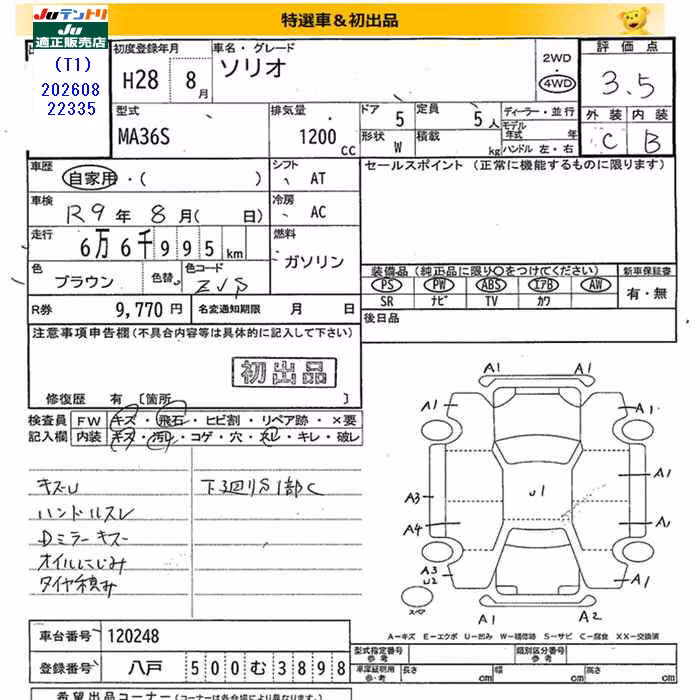 JUテントリ
JU
適正販売店
特選車＆初出品
(T1)
202608
22335
初度登録年月
H28 8月
車名・グレード
ソリオ
2WD
4WD
評価点
3.5
外装 内装
C B
型式
MA36S
排気量
1200 cc
ドア
5
定員
5人
形状
W
積載
kg
ディーラー・並行
モデル年式 年
ハンドル 左・右
車歴
自家用・( )
シフト
AT
セールスポイント (正常に機能するものに限ります)
車検
R9年 8月( 日)
冷房
AC
走行
6万6千995km
燃料
ガソリン
色
ブラウン
色替
色コード
装備品 (純正品に限り○をつけてください)
新車保証書
PS PW ABS エアB AW
有・無
SR ナビ TV カワ
R券
9,770円
名変通知期限 月 日
後日品
注意事項申告欄(不具合内容等は具体的に記入して下さい)
初出品
修復歴 有 〔箇所 〕
検査員
記入欄
FW キズ・飛石・ヒビ割・リペア跡・×要
内装 キズ・汚レ・コゲ・穴・スレ・キレ・破レ
キズU
下廻りS1部C
ハンドルスレ
Dミラーキズ
オイルにじみ
タイヤ積み
A1 A1
A1 A1
A3 U1 A1
A4 A1
A3
U2 A1
スペア
A1 A2
A－キズ E－エクボ U－凹み W－補修跡 S－サビ C－腐食 XX－交換済
車台番号
120248
登録番号
八戸 500む3898
型式指定番号
参考
類別区分番号
参考
車庫証明用
参考
長さ cm 幅 cm 高さ cm
希望出品コーナー (コーナーは各会場により異なります。)